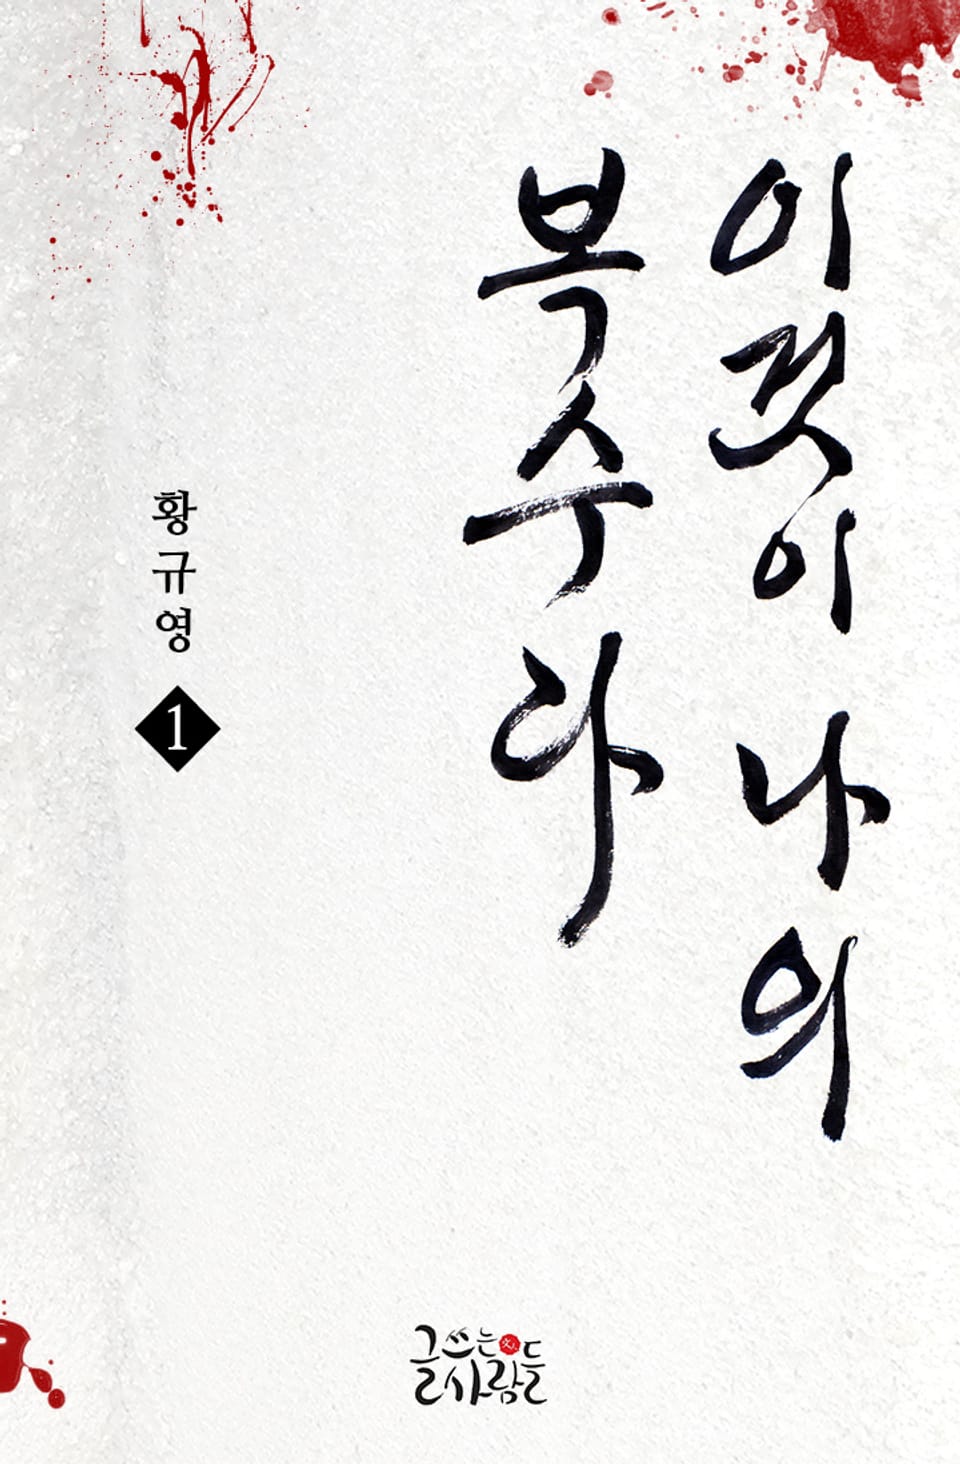 이것이 나의
복수다
황규영
1
글쓰는
사람들